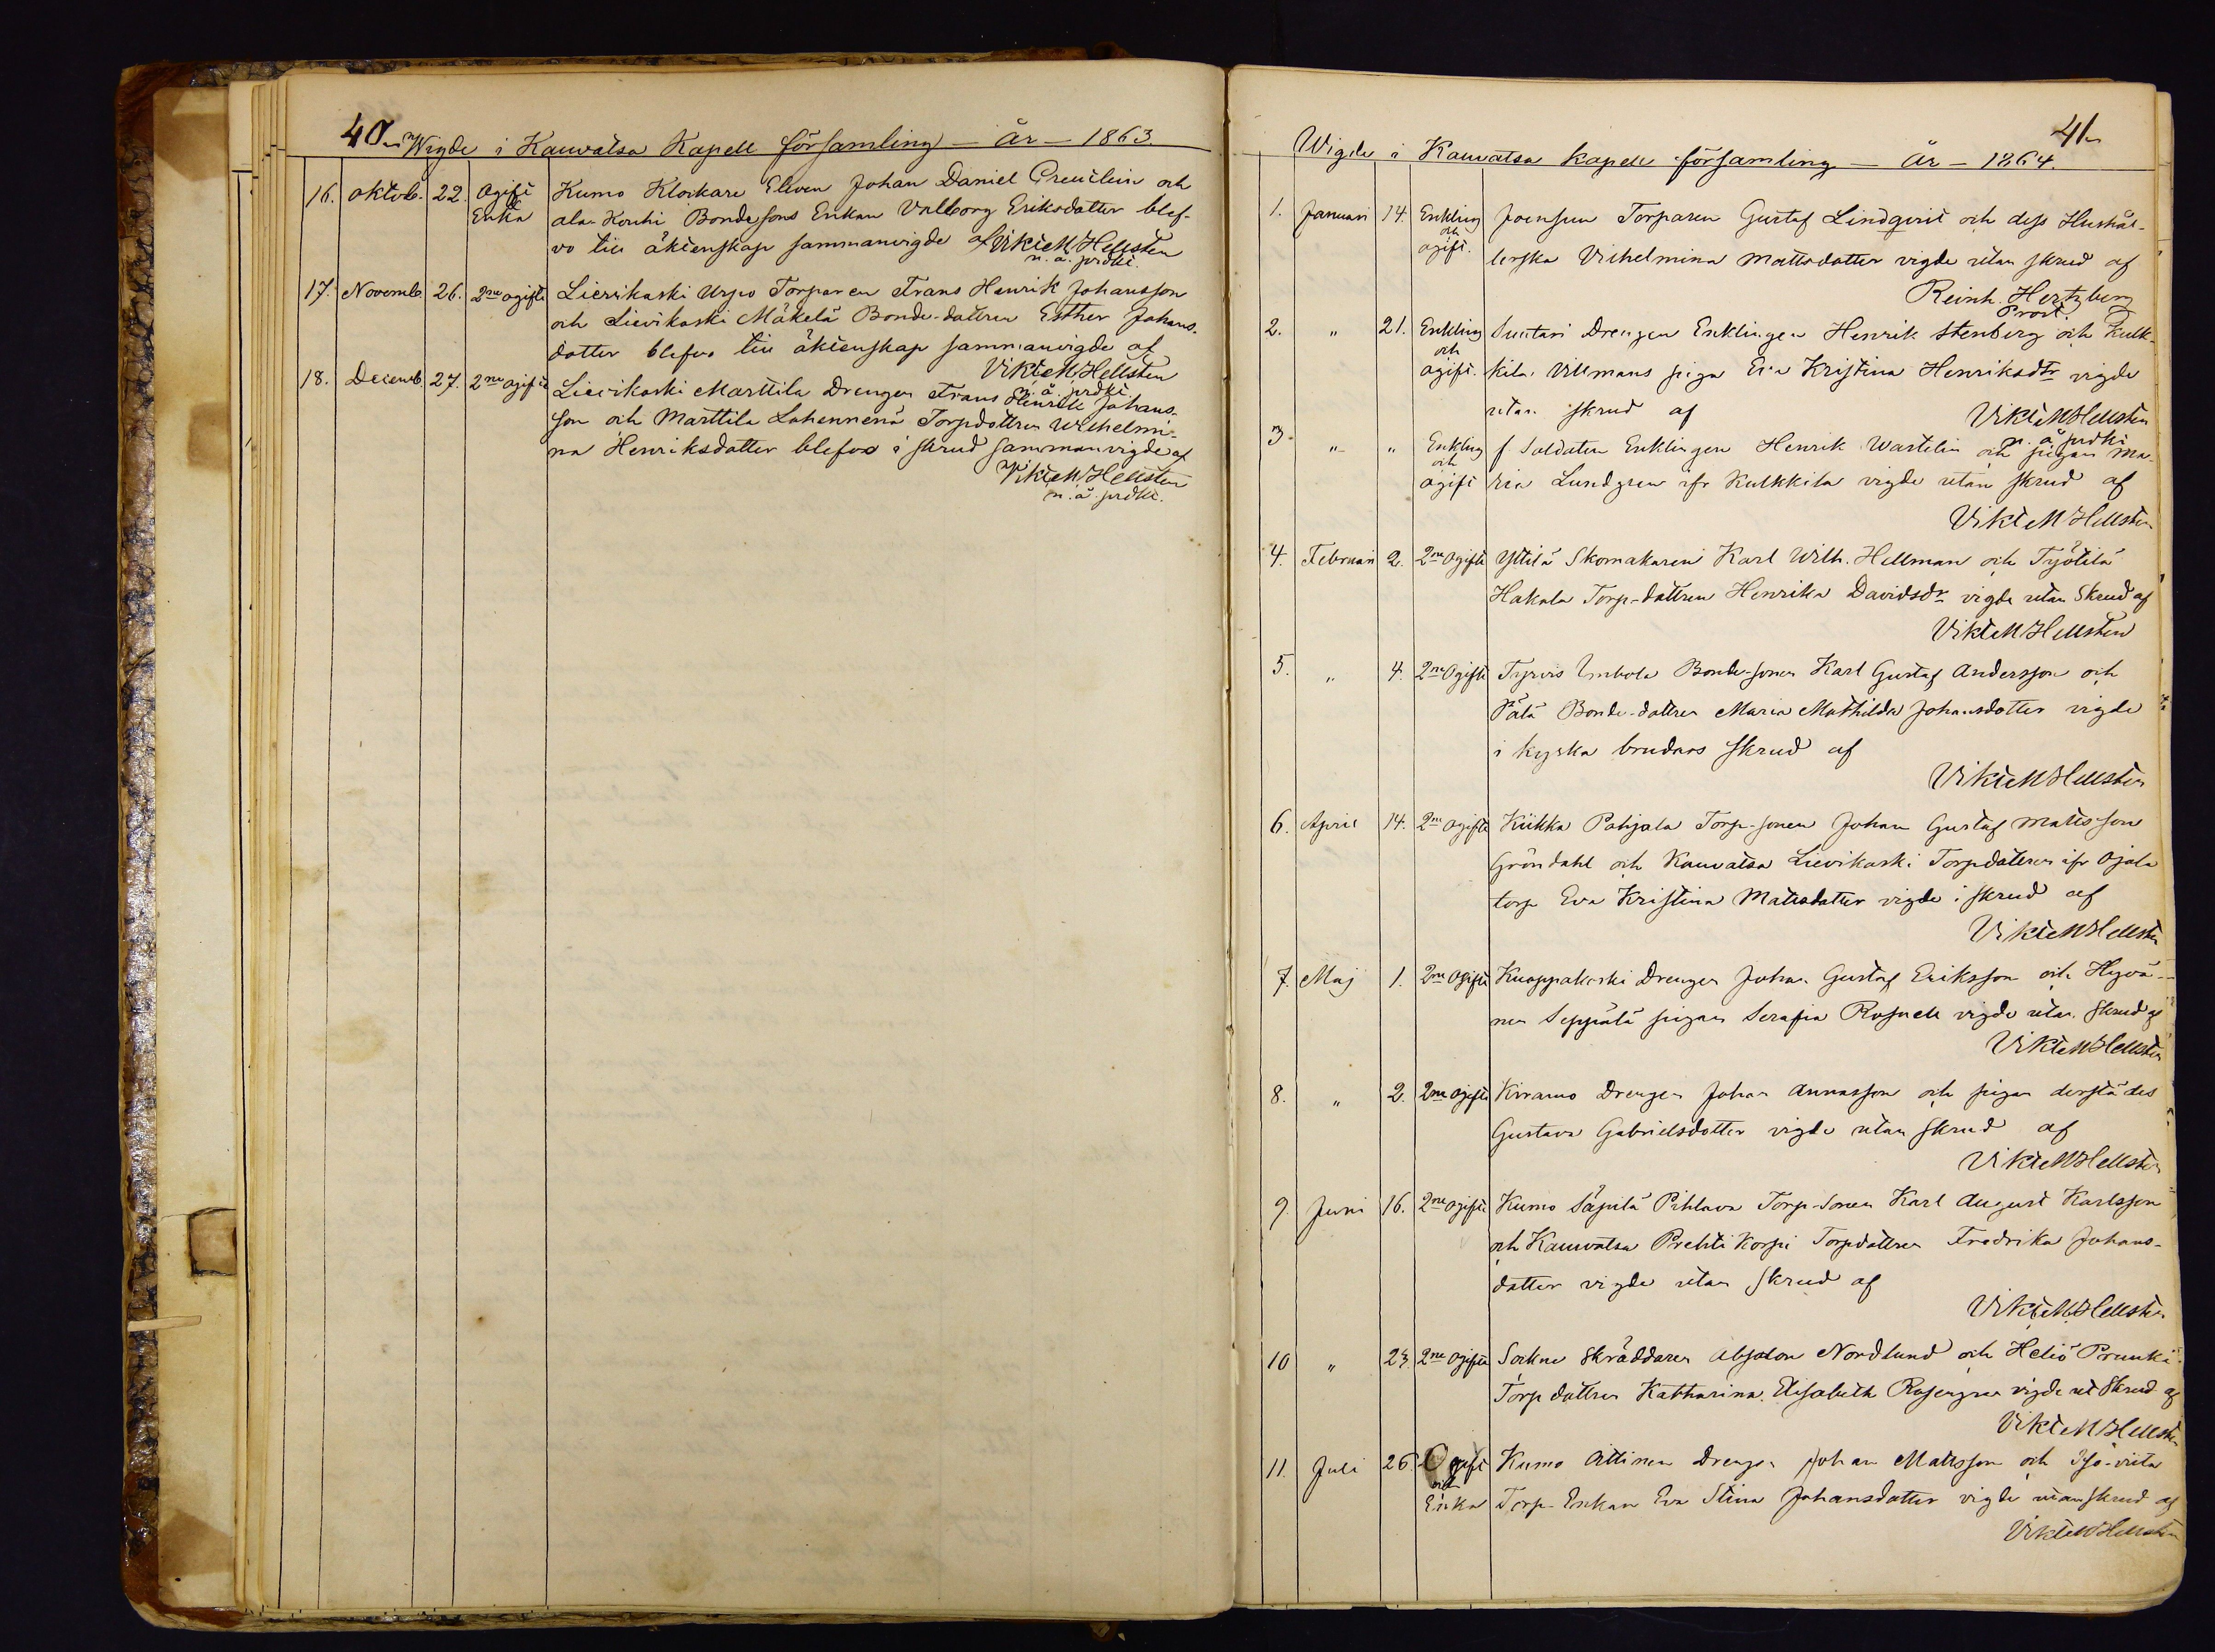 40
Wigde i Kauvatsa Kapell församling — år — 1863.
16. Oktob. 22. Ogift Kumo Klockare Eleven Johan Daniel Grenlein och
Enka ala Kouhi Bondesons Enkan Valborg Eriksdotter blef-
vo till äktenskap sammanvigde af Vikt M Hellsten
n. å. prdkt.
17. Novemb. 26. 2ne ogifte Lievikoski Urpo Torparen Frans Henrik Johansson
och Lievikoski Mäkelä Bonde-dottren Esther Johans-
dotter blefvo till äktenskap sammanvigde af
Vikt M Hellsten
n. å. prdkt.
18. Decemb. 27. 2ne ogifte Lievikoski Marttila Drengen Frans Henrik Johans-
son och Marttila Lahennenä Torpdottren Wilhelmi-
na Henriksdotter blefvo i skrud sammanvigde af
Vikt M Hellsten
n. å. prdkt.
41
Wigde i Kauvatsa kapell församling — År — 1864.
1. Januari 14. Enkling Joensuu Torparen Gustaf Lindqvist och dess Hushål-
och
ogift. lerska Vilhelmina Mattsdotter vigde utan skrud af
Reinh. Hertzberg
Prost.
2. " 21. Enkling Suntari Drengen Enklingen Henrik Stenberg och Kulk-
och
ogift. kila Villmans piga Eva Kristina Henriksdtr vigde
utan skrud af Vikt M Hellsten
n. å prdkt
3. " " Enkling f Soldaten Enklingen Henrik Wastelin och pigan Ma-
och
ogift ria Lundgren ifr Kulkkila vigde utan skrud af
Vikt M Hellsten
4. Februari 2. 2ne Ogifte Yttilä Skomakaren Karl Wilh. Hellman och Työtilä
Hakala Torp-dottren Henrika Davidsdr vigde utan Skrud af
Vikt M Hellsten
5. " 4. 2ne Ogifte Tyrvis Bonde-sonen Karl Gustaf Andersson och
Pälä Bonde-dottren Maria Mathilda Johansdotter vigde
i kyska brudars skrud af
Vikt M Hellsten
6. April 14. 2ne ogifte Kiikka Pohjala Torp-sonen Johan Gustaf Matsson
Gröndahl och Kauvatsa Lievikoski Torpdottren ifr Ojala
torp Eva Kristina Matsdotter vigde i skrud af
Vikt M Hellsten
7. Maj 1. 2ne Ogifte Kuoppakoski Drengen Johan Gustaf Eriksson och Hyvä-
nen Seppälä pigan Serafia Rosnell vigde utan Skrud af
Vikt M Hellsten
8. " 2. 2ne ogifte Kiramo Drengen Johan Annasson och pigan derstädes
Gustava Gabrielsdotter vigde utan skrud af
Vikt M Hellsten
9. Juni 16. 2ne ogifte Kumo Säpilä Pihlava Torp-Sonen Karl August Karlsson
och Kauvatsa Prehti korpi Torpdottren Fredrika Johans-
dotter vigde utan skrud af
Vikt M Hellsten
10 " 23. 2ne ogifte Sockne Skräddaren Absalon Nordlund och Heliö Prunki
Torp dottren Katharina Elisabeth Rosengren vigde ut Skrud af
Vikt M Hellsten
11. Juli 26. Ogift Kumo Aittinen Drengen Johan Mattsson och
och
Enka Torp-Enkan Eva Stina Johansdotter vigde utan skrud af
Vikt M Hellsten